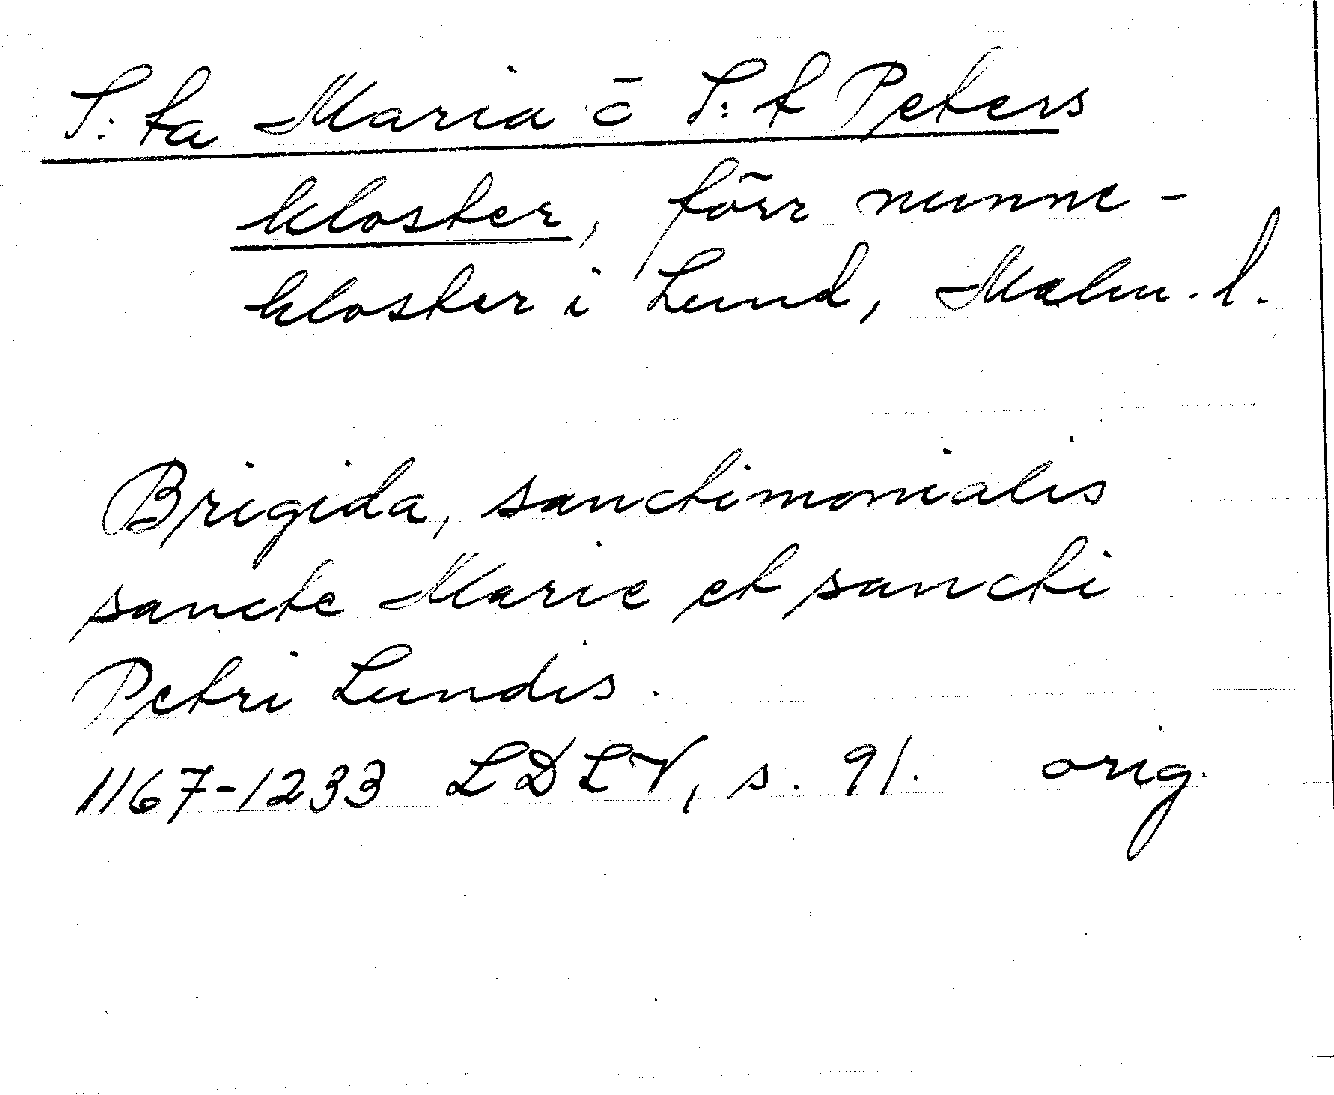 S:ta Maria o S:t Peters
kloster, förr nunne-
kloster i Lund, Malm. l.
Brigida, sanctimonialis
sancte Marie et sancti
Petri Lundis.
1167-1233 LDLV, s. 91. orig.